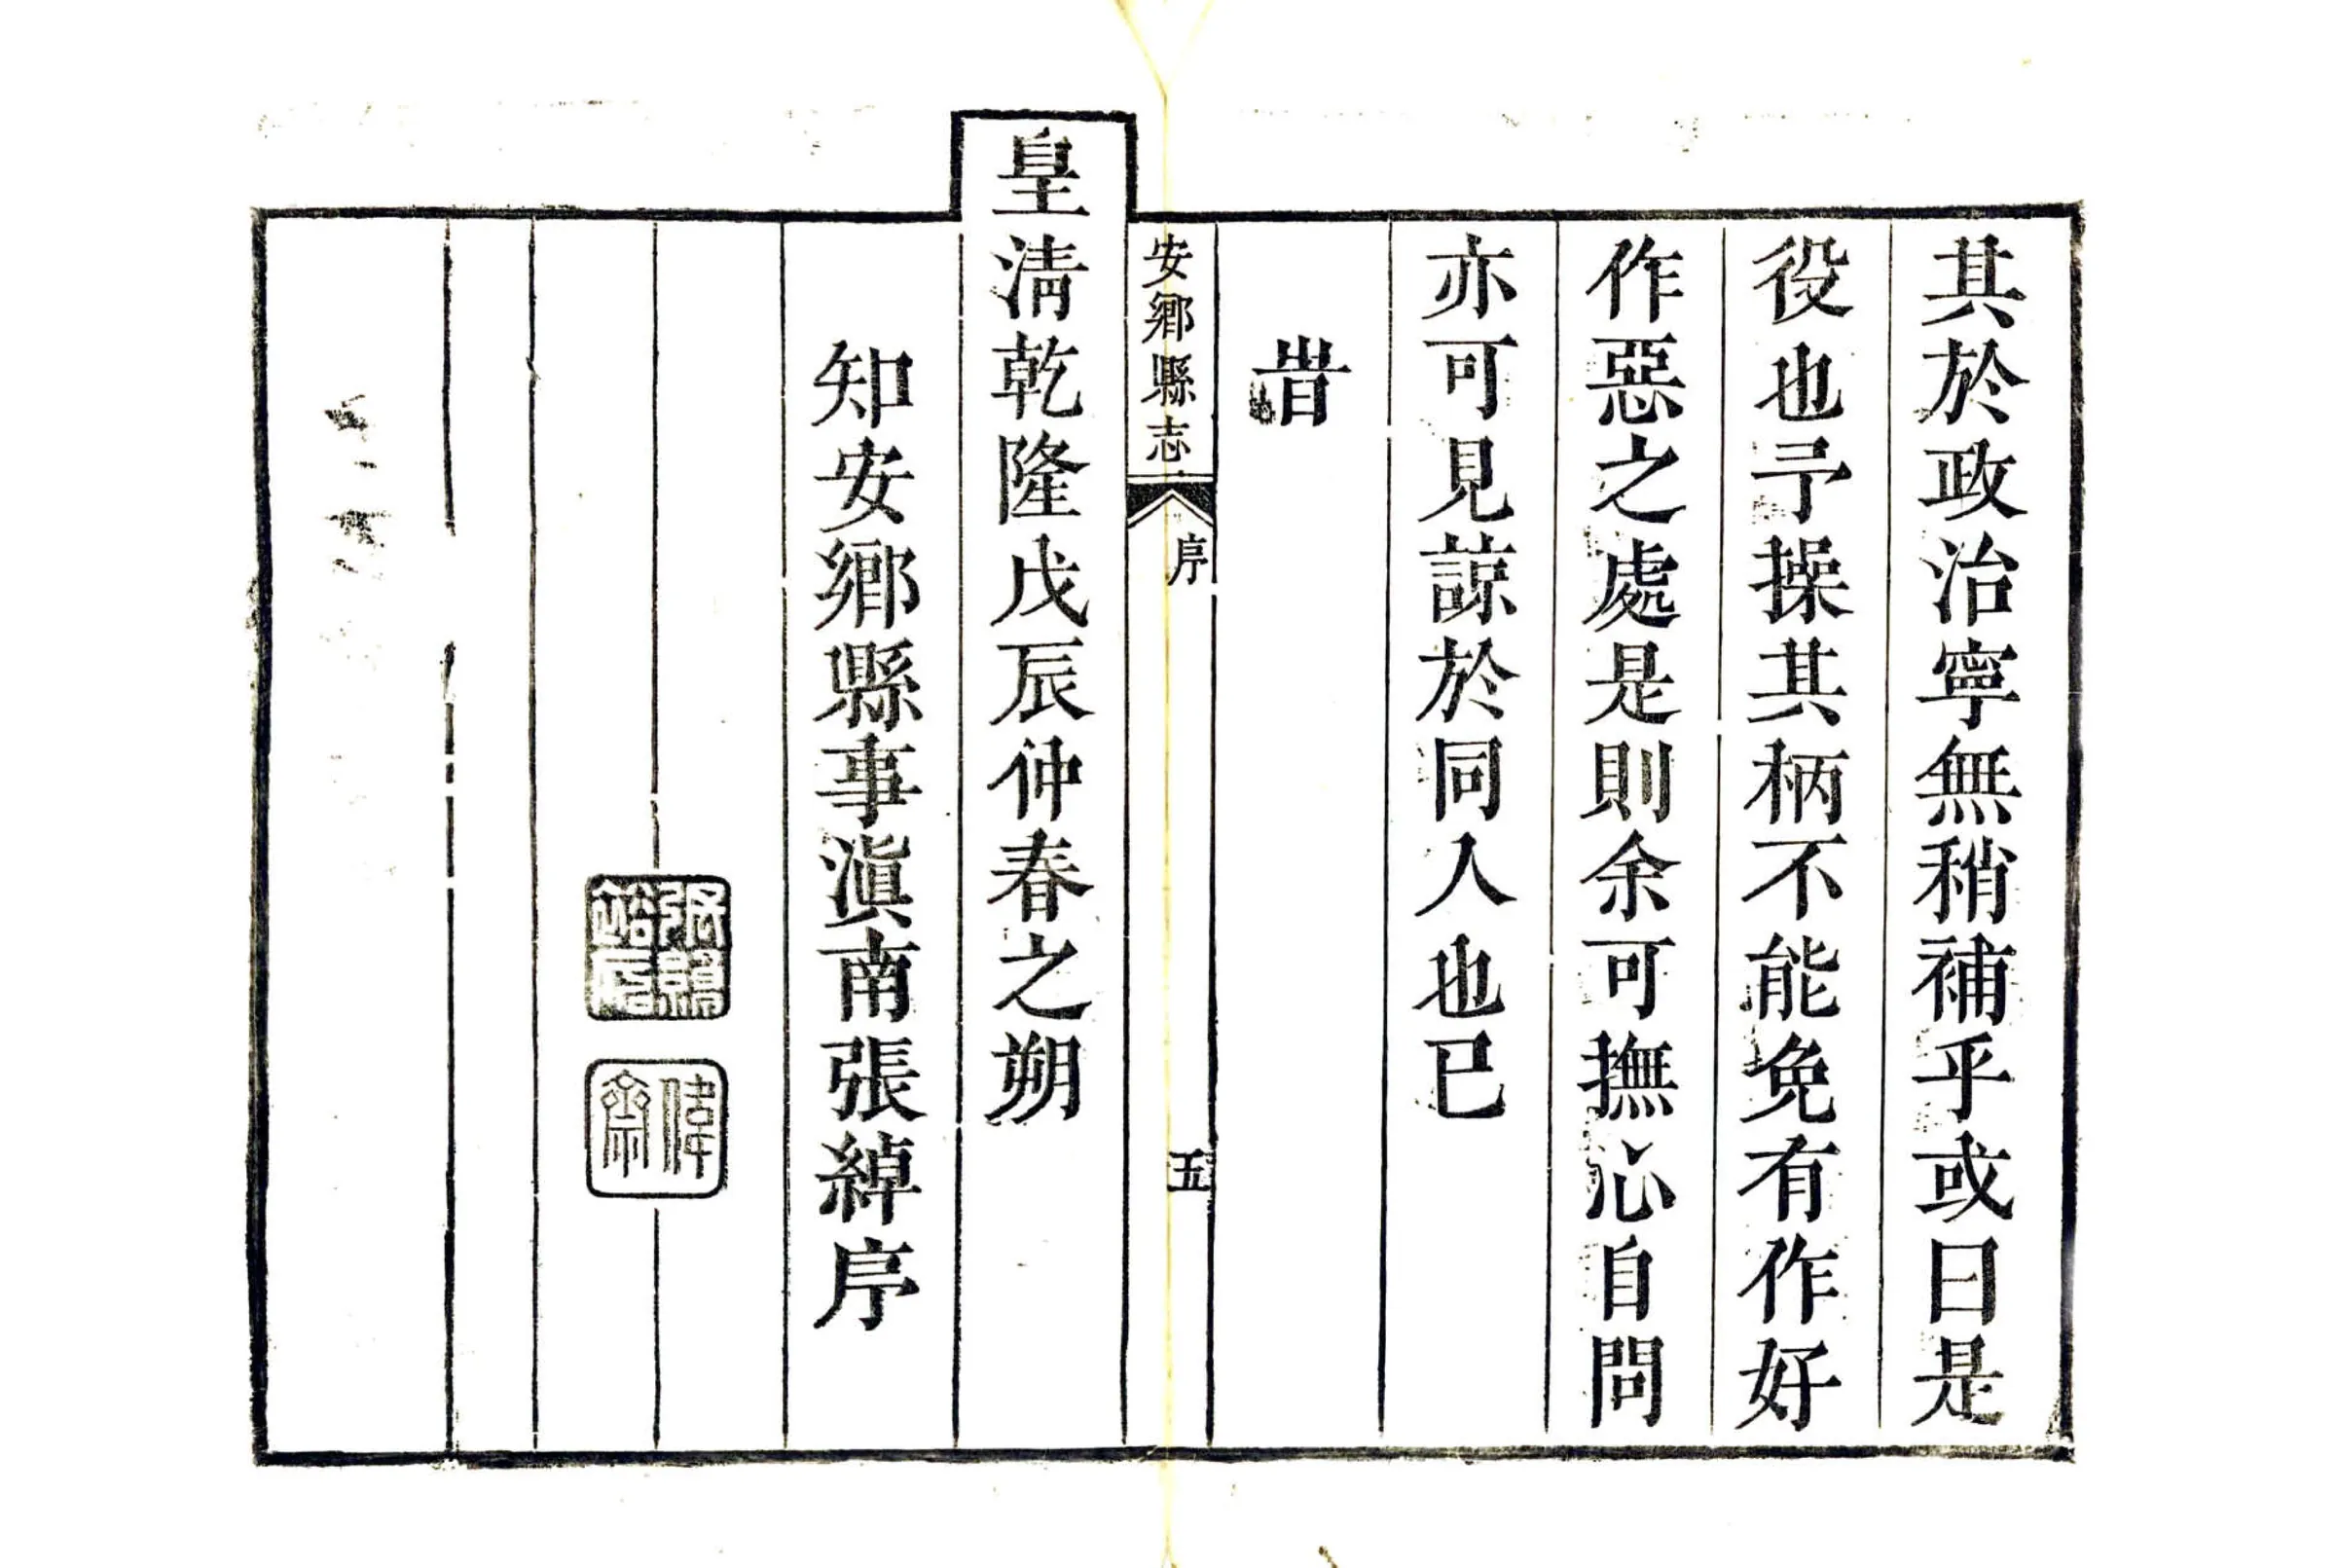 其於政治寧無稍補乎或曰是
役也予操其柄不能免有作好
作惡之處是則余可撫心自問
亦可見諒於同人也已
旹
安鄉縣志
序
五
皇清乾隆戊辰仲春之朔
知安鄉縣事滇南張綽序
偉齋